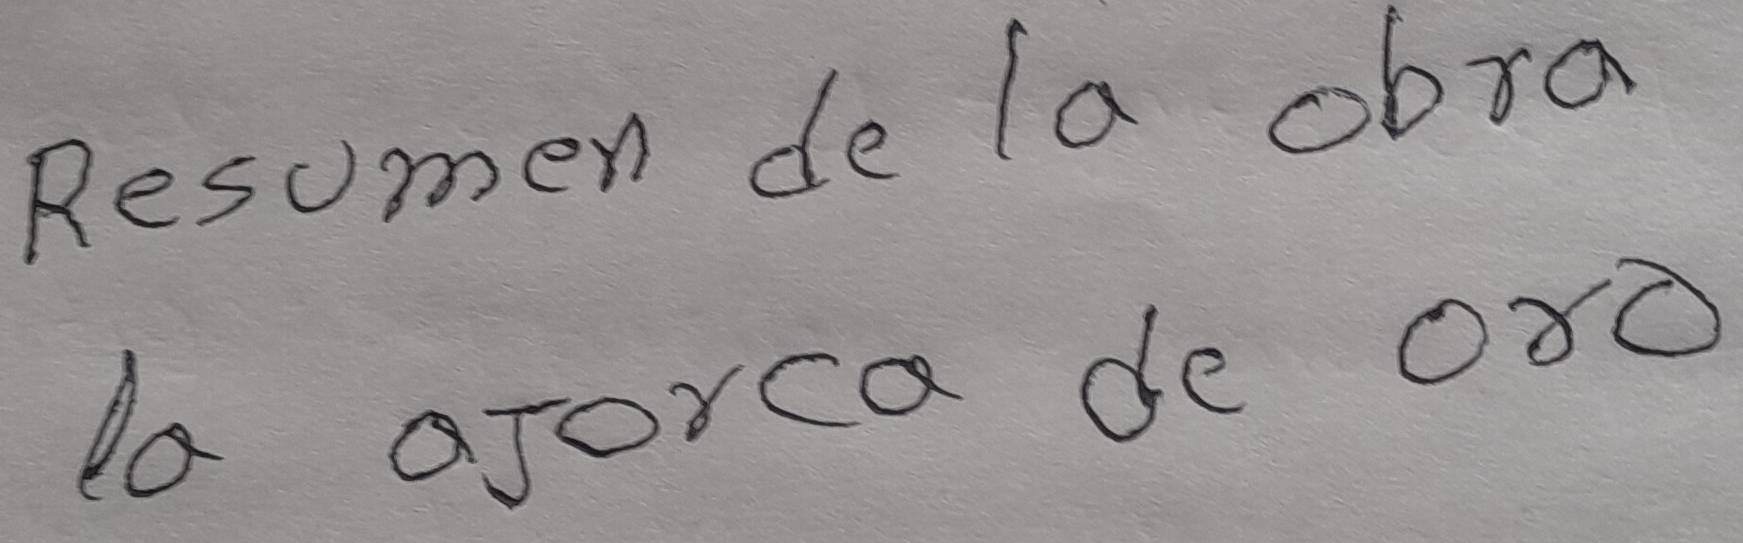 Resumen de la obra
la ajorca de oro